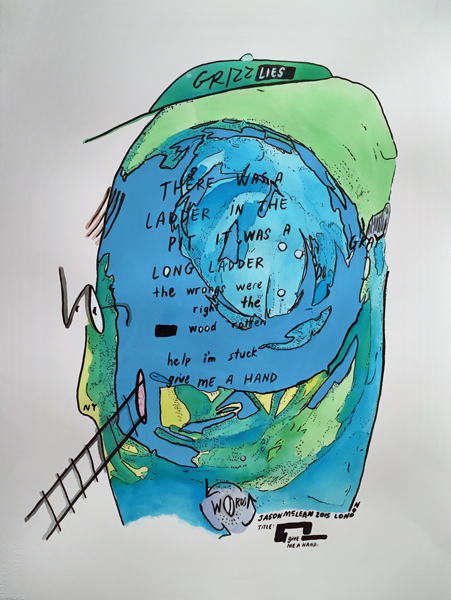 GRIZZ LIES
THERE WAS A
LADDER IN THE
PIT IT WAS A
LONG LADDER
GRAY
the wrongs were
right the
wood rotten
help i'm stuck
give ME A HAND
NY
WORDS
JASON MCLEAN 2015 LONDON
TITLE:
give
ME A HAND.